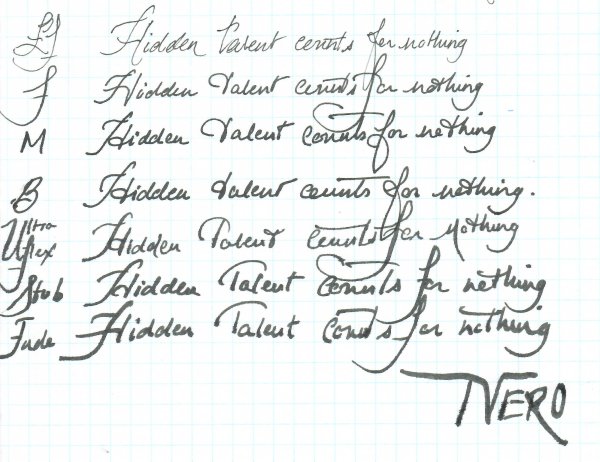 EF Hidden Talent counts for nothing
F Hidden Talent counts for nothing
M Hidden Talent counts for nothing
B Hidden Talent counts for nothing.
Ultra flex Hidden Talent counts for nothing
Stub Hidden Talent counts for nothing
Jude Hidden Talent counts for nothing
NERO